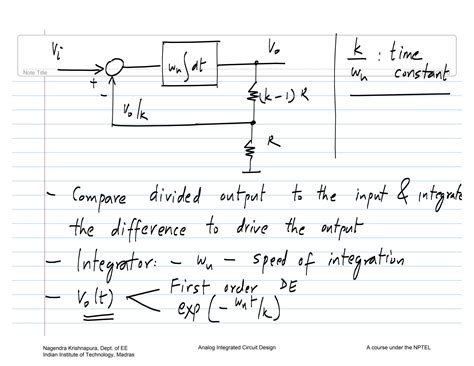 Note Title
Vi
+
-
wu ∫dt
Vo
(k-1) R
Vo/k
R
k/wu : time constant
- Compare divided output to the input & integrate
the difference to drive the output
- Integrator: - wu - speed of integration
- Vo(t) < First order DE
exp(-wut/k)
Nagendra Krishnapura, Dept. of EE
Indian Institute of Technology, Madras
Analog Integrated Circuit Design
A course under the NPTEL